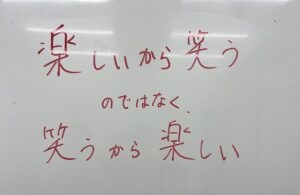 楽しいから笑う
のではなく、
笑うから楽しい